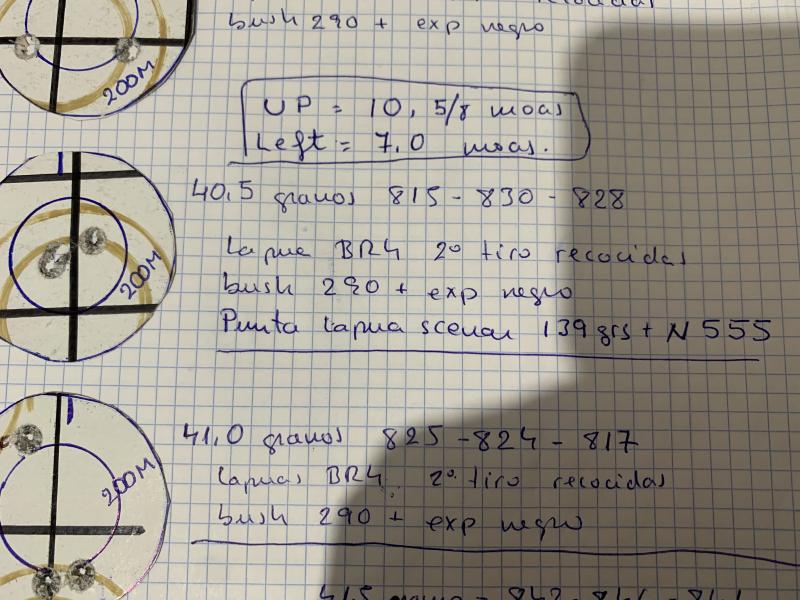 bush 290 + exp negro
200M
UP = 10, 5/8 moas
Left = 7.0 moas.
40.5 granos 815 - 830 - 828
200M
Lapua BR4 2º tiro recocidas
bush 290 + exp negro
Punta lapua scenar 139 grs + N555
41.0 granos 825 - 824 - 817
200M
Lapuas BR4. 2º tiro recocidas
bush 290 + exp negro